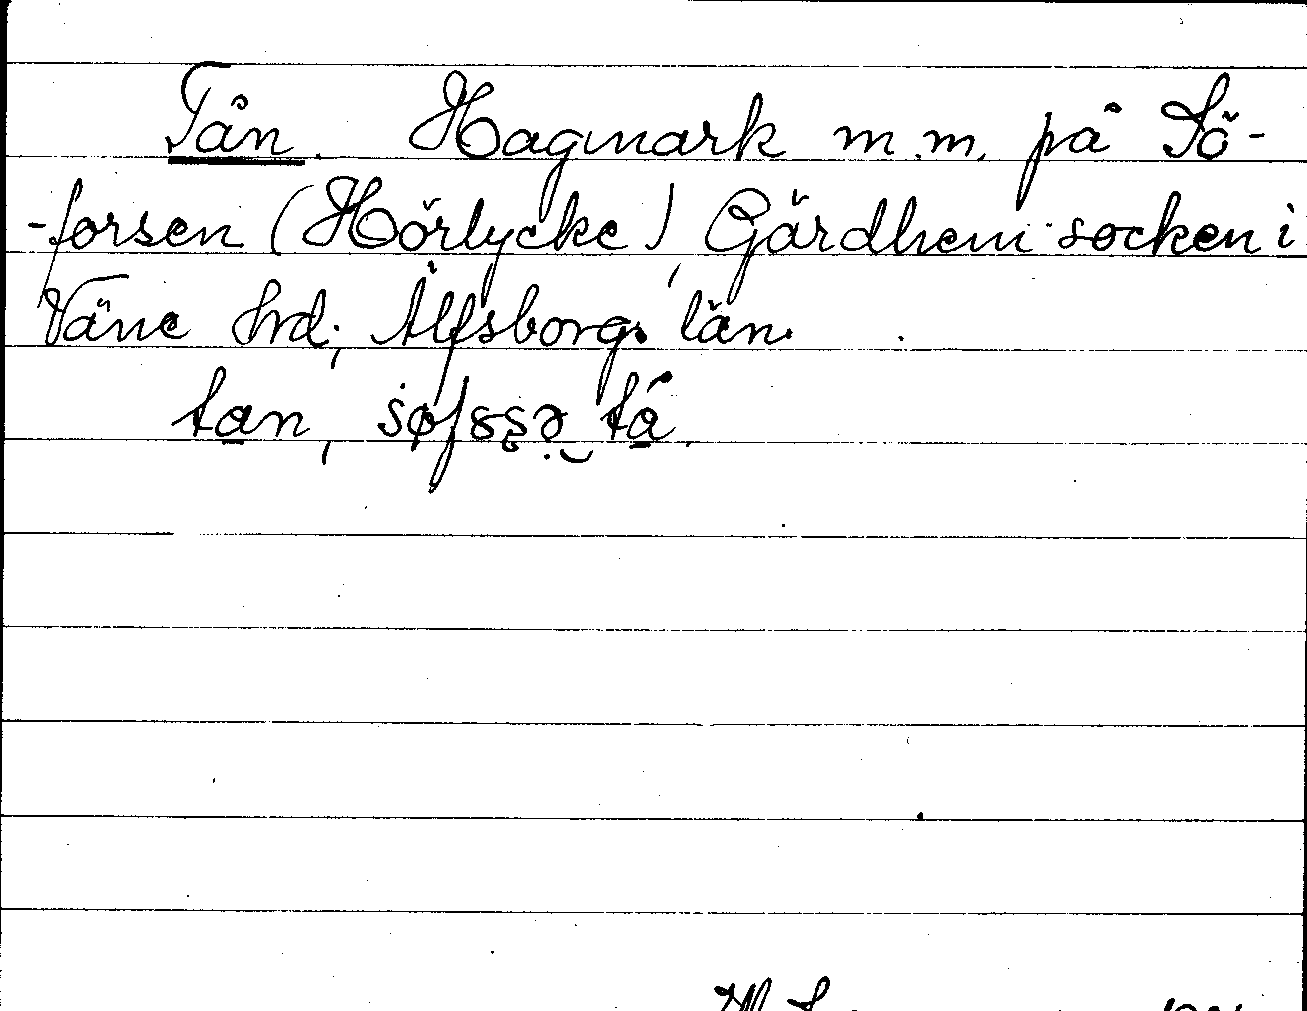 Tån. Hagmark m.m. på Sö-
-forsen (Hörlycke), Gärdhem socken i
Väne hrd; Älfsborgs län.
tan,